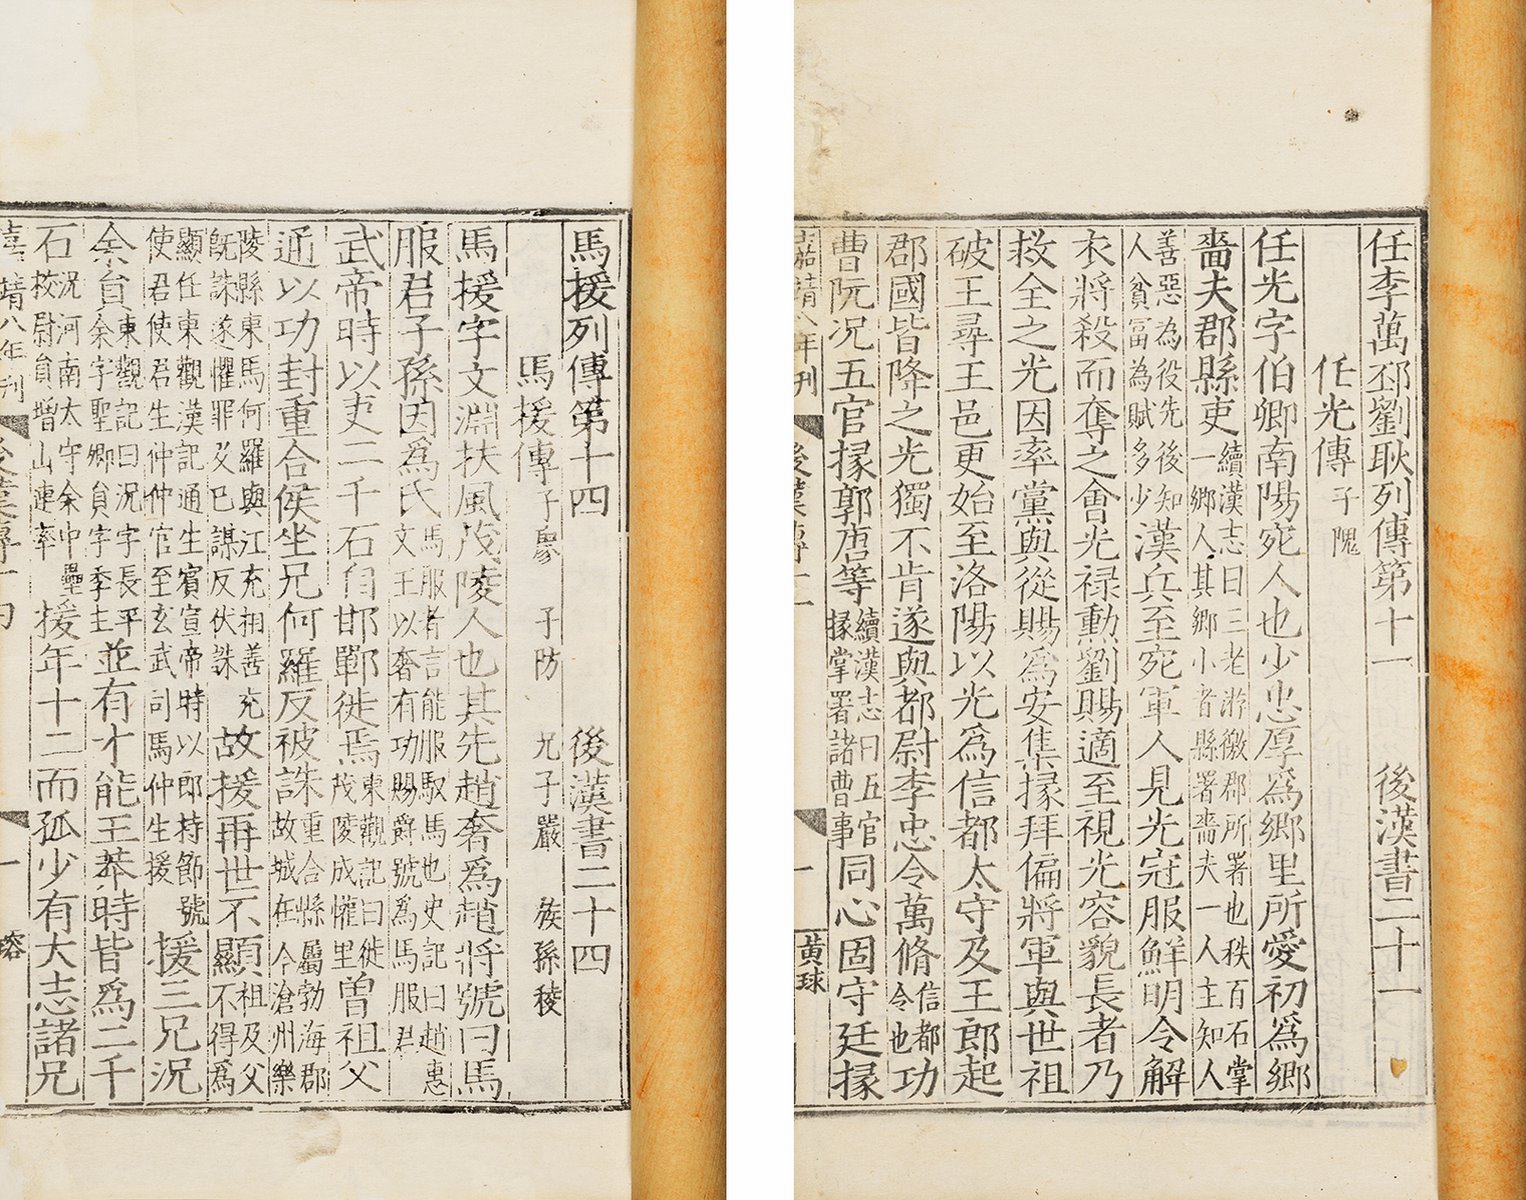 任李萬邳劉耿列傳第十一　後漢書二十一
任光傳 子隗
任光字伯卿南陽宛人也少忠厚爲鄉里所愛初爲鄉
嗇夫郡縣吏續漢志曰三老游徼郡所署也秩百石掌一鄉人其鄉小者縣署嗇夫一人主知人
善惡為役先後知人貧富為賦多少漢兵至宛軍人見光冠服鮮明令解
衣將殺而奪之會光禄勳劉賜適至視光容貌長者乃
救全之光因率黨與從賜爲安集掾拜偏將軍與世祖
破王尋王邑更始至洛陽以光爲信都太守及王郎起
郡國皆降之光獨不肯遂與都尉李忠令萬脩信都令也功
曹阮况五官掾郭唐等續漢志曰五官掾掌署諸曹事同心固守廷掾
嘉靖八年刊　後漢傳十一　一　黃球
馬援列傳第十四　後漢書二十四
馬援傳 子廖　子防　兄子嚴　族孫稜
馬援字文淵扶風茂陵人也其先趙奢爲趙將號曰馬
服君子孫因爲氏馬服者言能服馭馬也史記曰趙惠文王以奢有功賜爵號爲馬服君
武帝時以吏二千石自邯鄲徙焉東觀記曰徙茂陵成懽里曾祖父
通以功封重合侯坐兄何羅反被誅重合縣屬勃海郡故城在今滄州樂
陵縣東馬何羅與江充相善充既誅遂懼罪及已謀反伏誅故援再世不顯祖及父不得爲
顯任東觀漢記通生賓宣帝時以郎持節號使君使君生仲仲官至玄武司馬仲生援援三兄况
余員東觀記曰况字長平余字聖卿員字季主並有才能王莽時皆爲二千
石况河南太守余中壘校尉員增山連率援年十二而孤少有大志諸兄
嘉靖八年刊　後漢傳十四　一